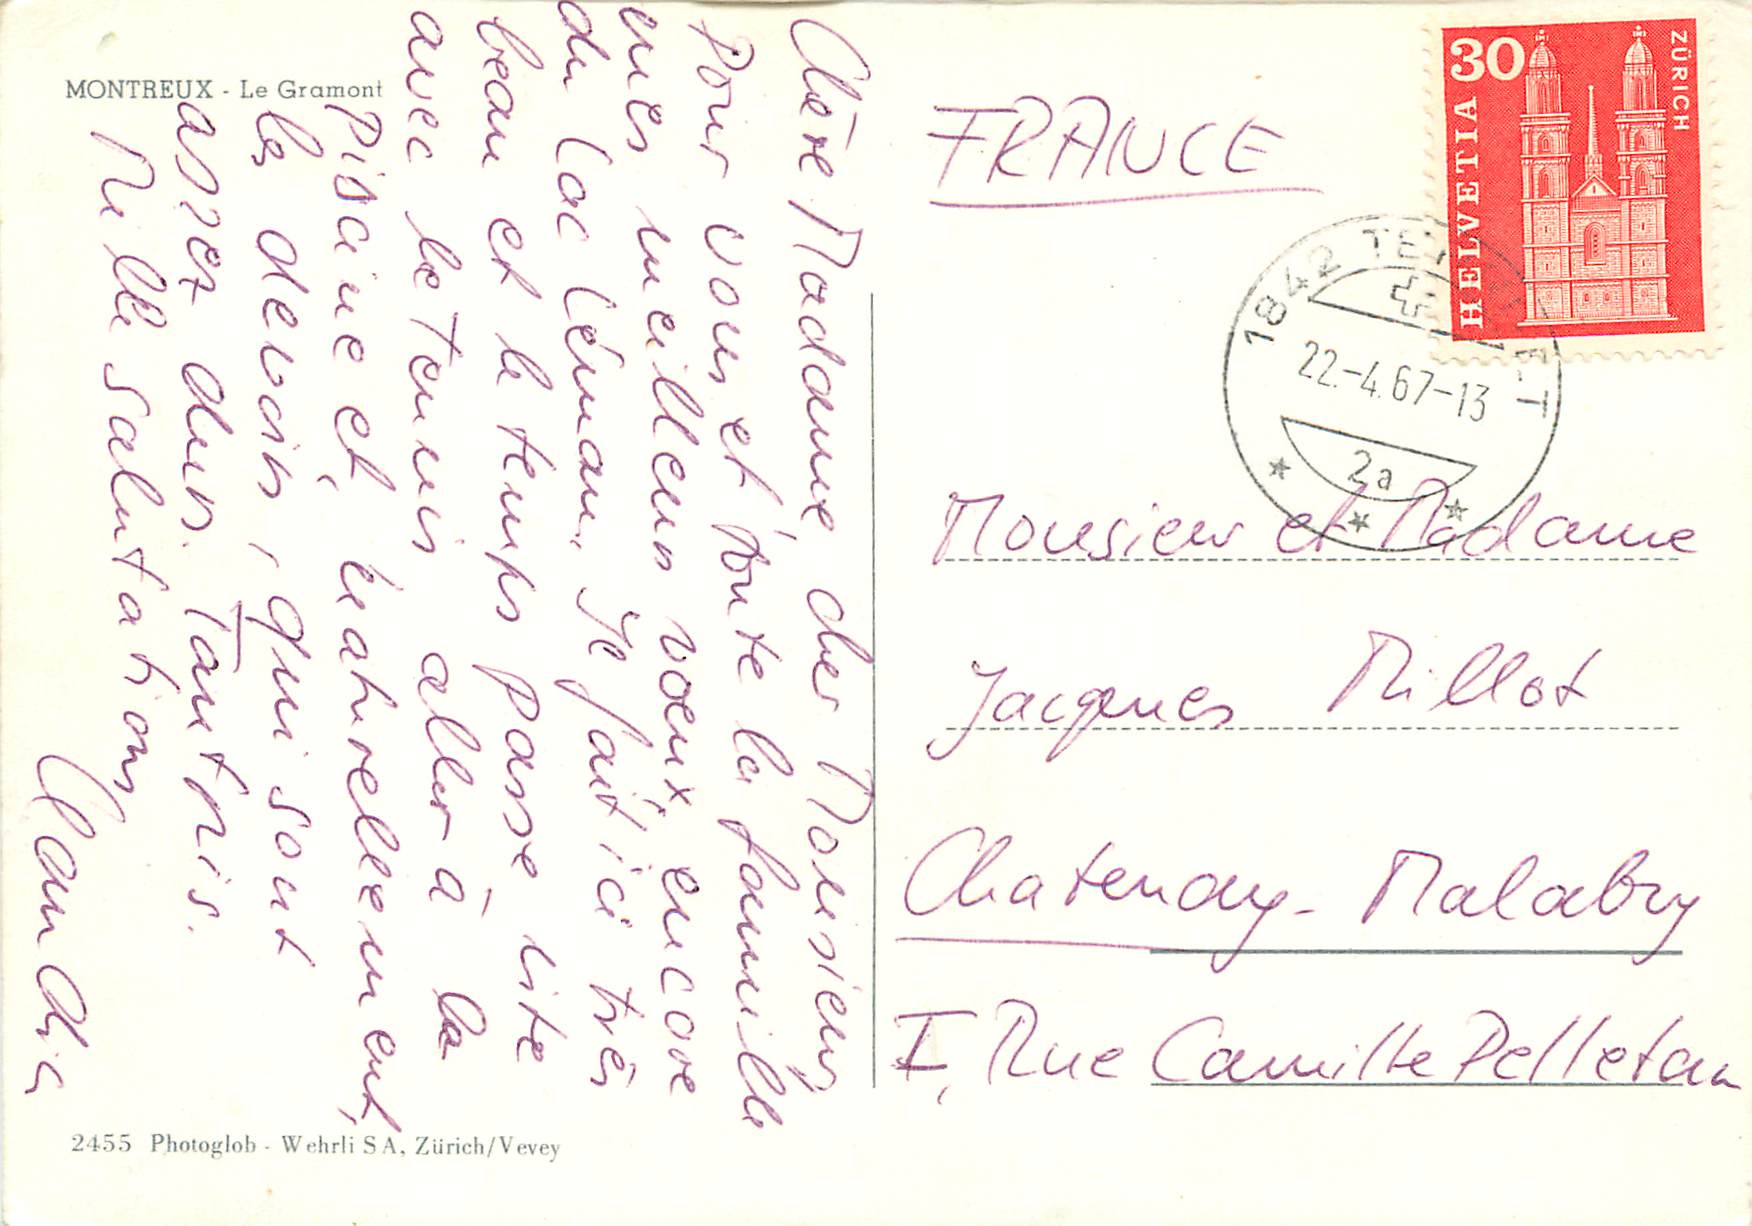 MONTREUX - Le Gramont
Chère Madame, cher Monsieur,
Pour vous et toute la famille
mes meilleurs voeux, encore
du lac Léman. Il fait ici très
beau et le temps passe vite
avec le tennis aller à la
Piscine et, naturellement,
les devoirs, qui sont
assez durs. Tant pis.
Mille salutations
Claudia
2455 Photoglob - Wehrli SA, Zürich/Vevey
FRANCE
30
HELVETIA
ZÜRICH
1842 TERRITET
22.-4.67-13
2a
Monsieur et Madame
Jacques Millot
Chatenay-Malabry
I, Rue Camille Pelletan